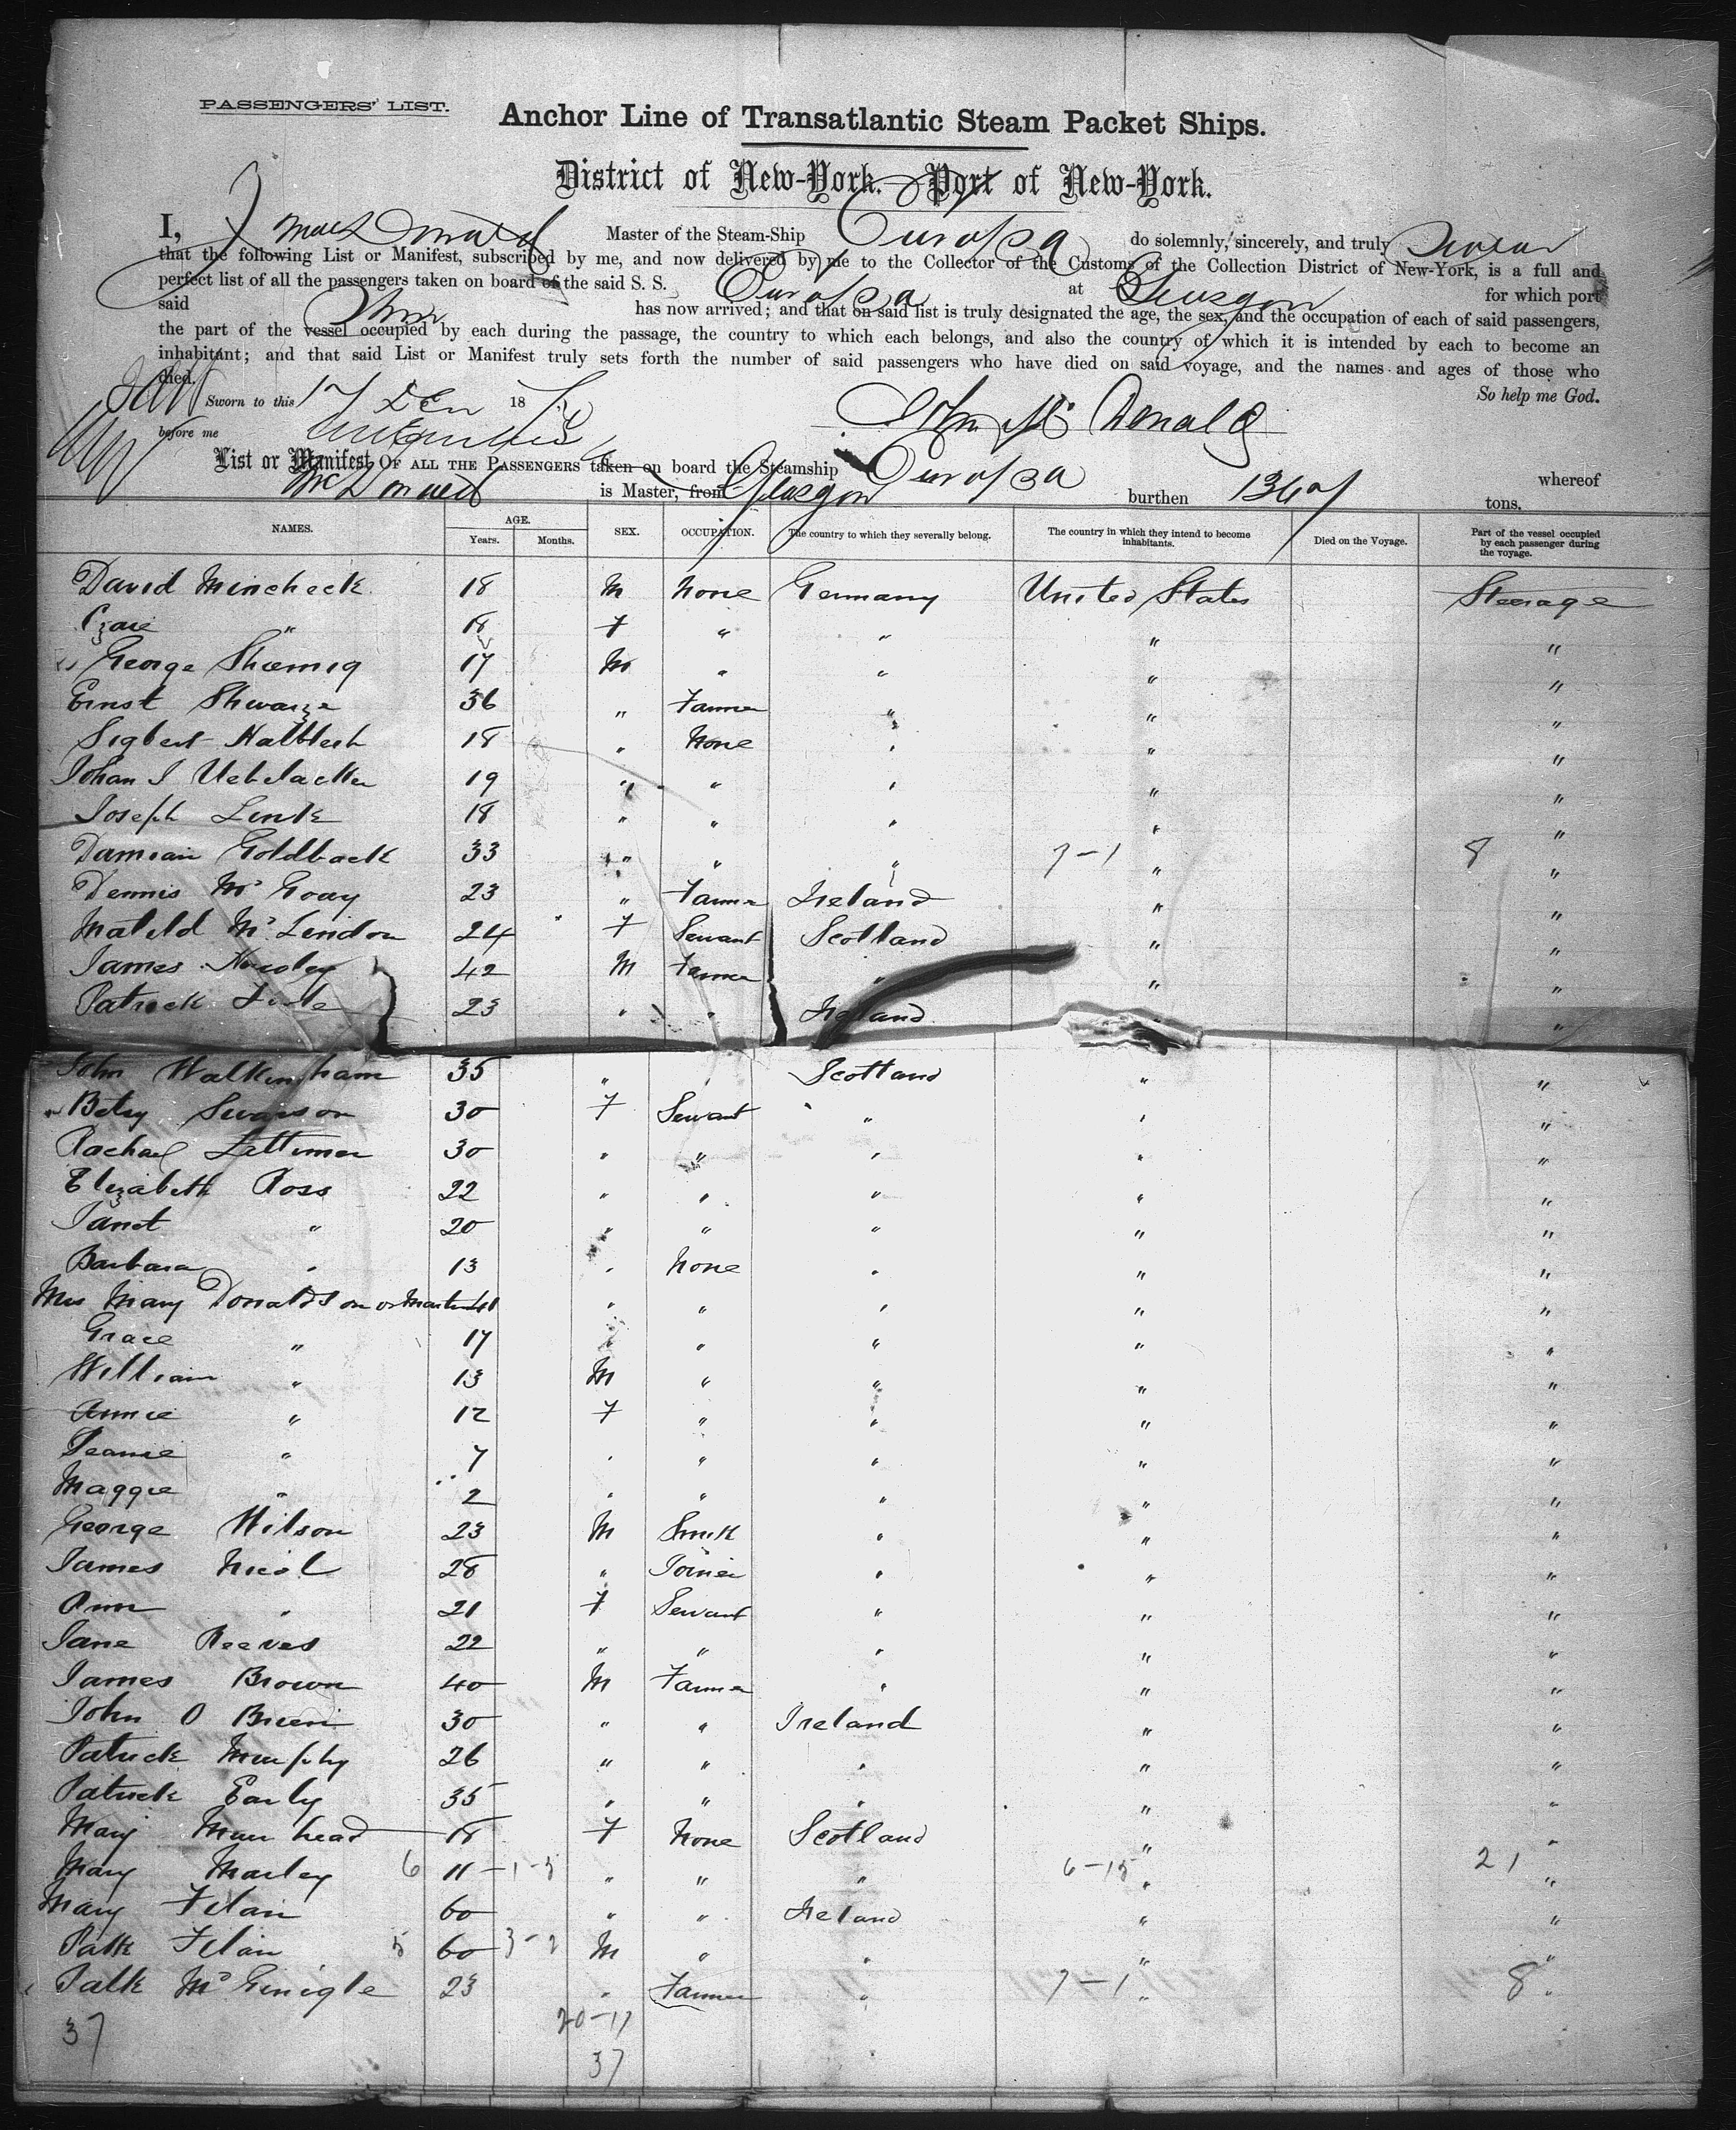 PASSENGERS' LIST.
Anchor Line of Transatlantic Steam Packet Ships.
District of New-York. Port of New-York.
I, J MacDonald Master of the Steam-Ship Europa do solemnly, sincerely, and truly swear
that the following List or Manifest, subscribed by me, and now delivered by me to the Collector of the Customs of the Collection District of New-York, is a full and
perfect list of all the passengers taken on board of the said S. S. Europa at Glasgow for which port
said has now arrived; and that on said list is truly designated the age, the sex, and the occupation of each of said passengers,
the part of the vessel occupied by each during the passage, the country to which each belongs, and also the country of which it is intended by each to become an
inhabitant; and that said List or Manifest truly sets forth the number of said passengers who have died on said voyage, and the names and ages of those who
died. So help me God.
Sworn to this 17 Dec 18
before me John McDonald
List or Manifest OF ALL THE PASSENGERS taken on board the Steamship Europa whereof
McDonald is Master, from Glasgow burthen tons.
NAMES. AGE. Years. Months. SEX. OCCUPATION. The country to which they severally belong. The country in which they intend to become inhabitants. Died on the Voyage. Part of the vessel occupied by each passenger during the voyage.
David Mincheck 18 M None Germany United States Steerage
" 18 F " " " "
George 17 M " " " "
Ernst Shwarze 36 " Farmer " " "
Sigbert 18 " None " " "
Johan J Uebelacker 19 " " " " "
Joseph Link 18 " " " " "
Damian Goldback 33 " " " 7-1 " 8 "
Dennis McGoay 23 " Farmer Ireland " "
Matild McLindon 24 F Servant Scotland " "
James 42 M Farmer " " "
Patrick 23 " " Ireland " "
John Walkingham 35 " " Scotland " "
Betsy Swanson 30 F Servant " " "
Rachael Lattimer 30 " " " " "
Elizabeth Ross 22 " " " " "
Janet " 20 " " " " "
Barbara " 13 " None " " "
Mrs Mary Donaldson or Martin 41 " " " " "
Grace " 17 " " " " "
William " 13 M " " " "
Annie " 12 F " " " "
Jeanie " 7 " " " " "
Maggie " 2 " " " " "
George Wilson 23 M Smith " " "
James Nicol 28 " Joiner " " "
Ann " 21 F Servant " " "
Jane Reeves 22 " " " " "
James Brown 40 M Farmer " " "
John O Brien 30 " " Ireland " "
Patrick Murphy 26 " " " " "
Patrick Early 35 " " " " "
Mary Muirhead 18 F None Scotland " "
Mary Marley 6 11 -1-3 " " " 6-15 " 21 "
Mary Filan 60 " " Ireland " "
Patk Filan 5 60 3-2 M " " " "
Patk McGinigle 23 " Farmer " 7-1 " 8 "
37 20-17
37